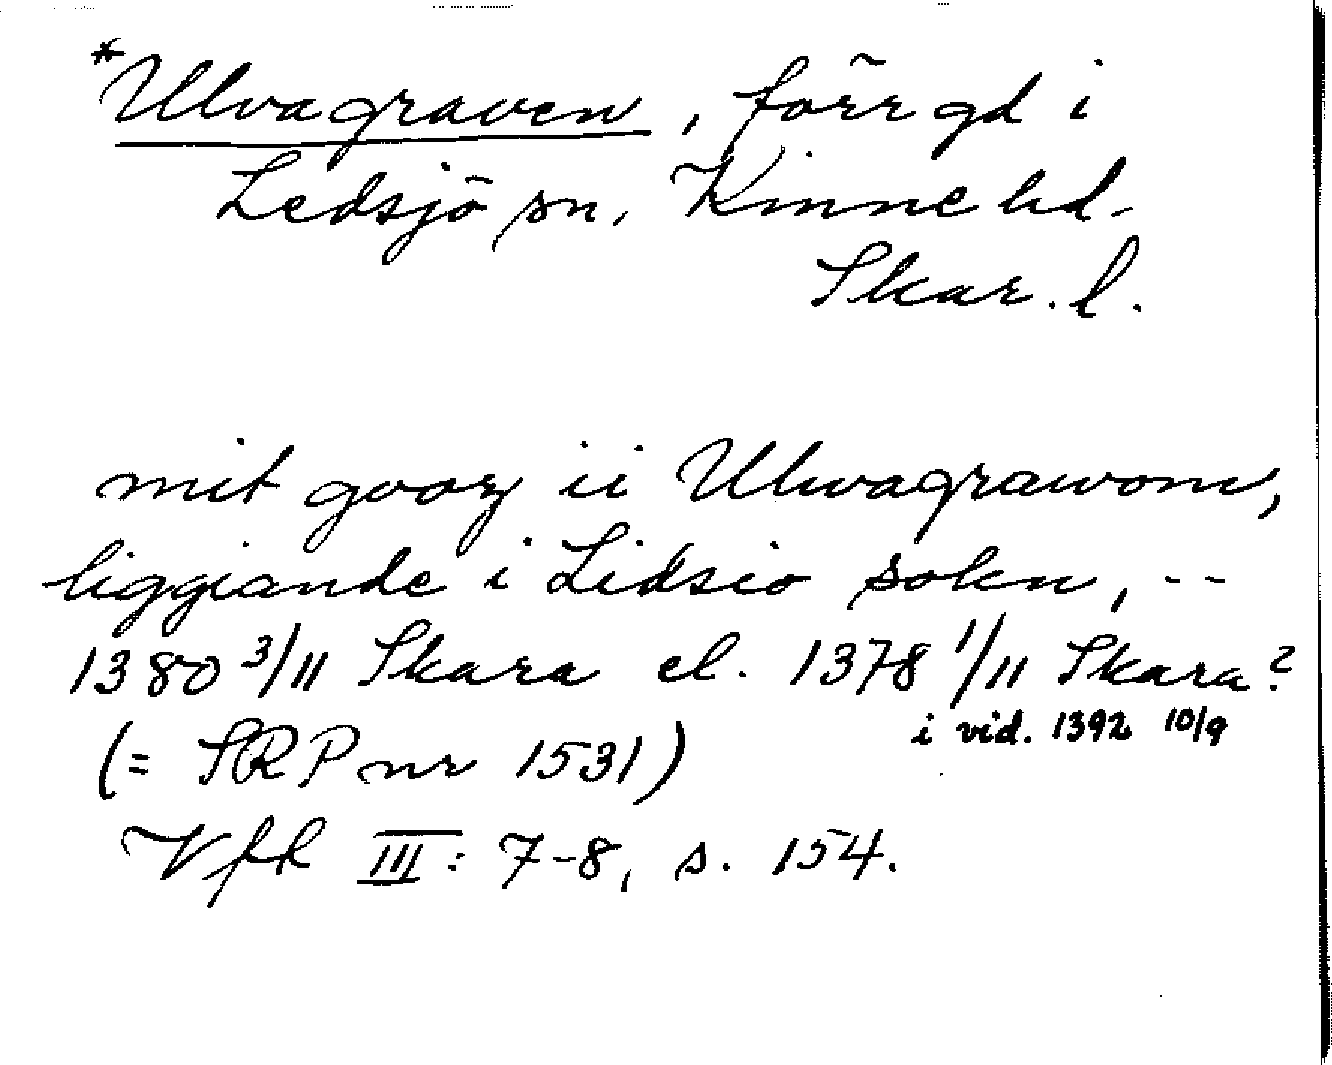 *Ulvagraven, förr gd i
Ledsjö sn, Kinne hd.
Skar. l.
mit gooz ii Ulwagrawom,
liggiande i Lidsio sokn, --
1380 3/11 Skara el. 1378 1/11 Skara?
i vid. 1392 10/9
(= SRP nr 1531)
Vfk III: 7-8, s. 154.